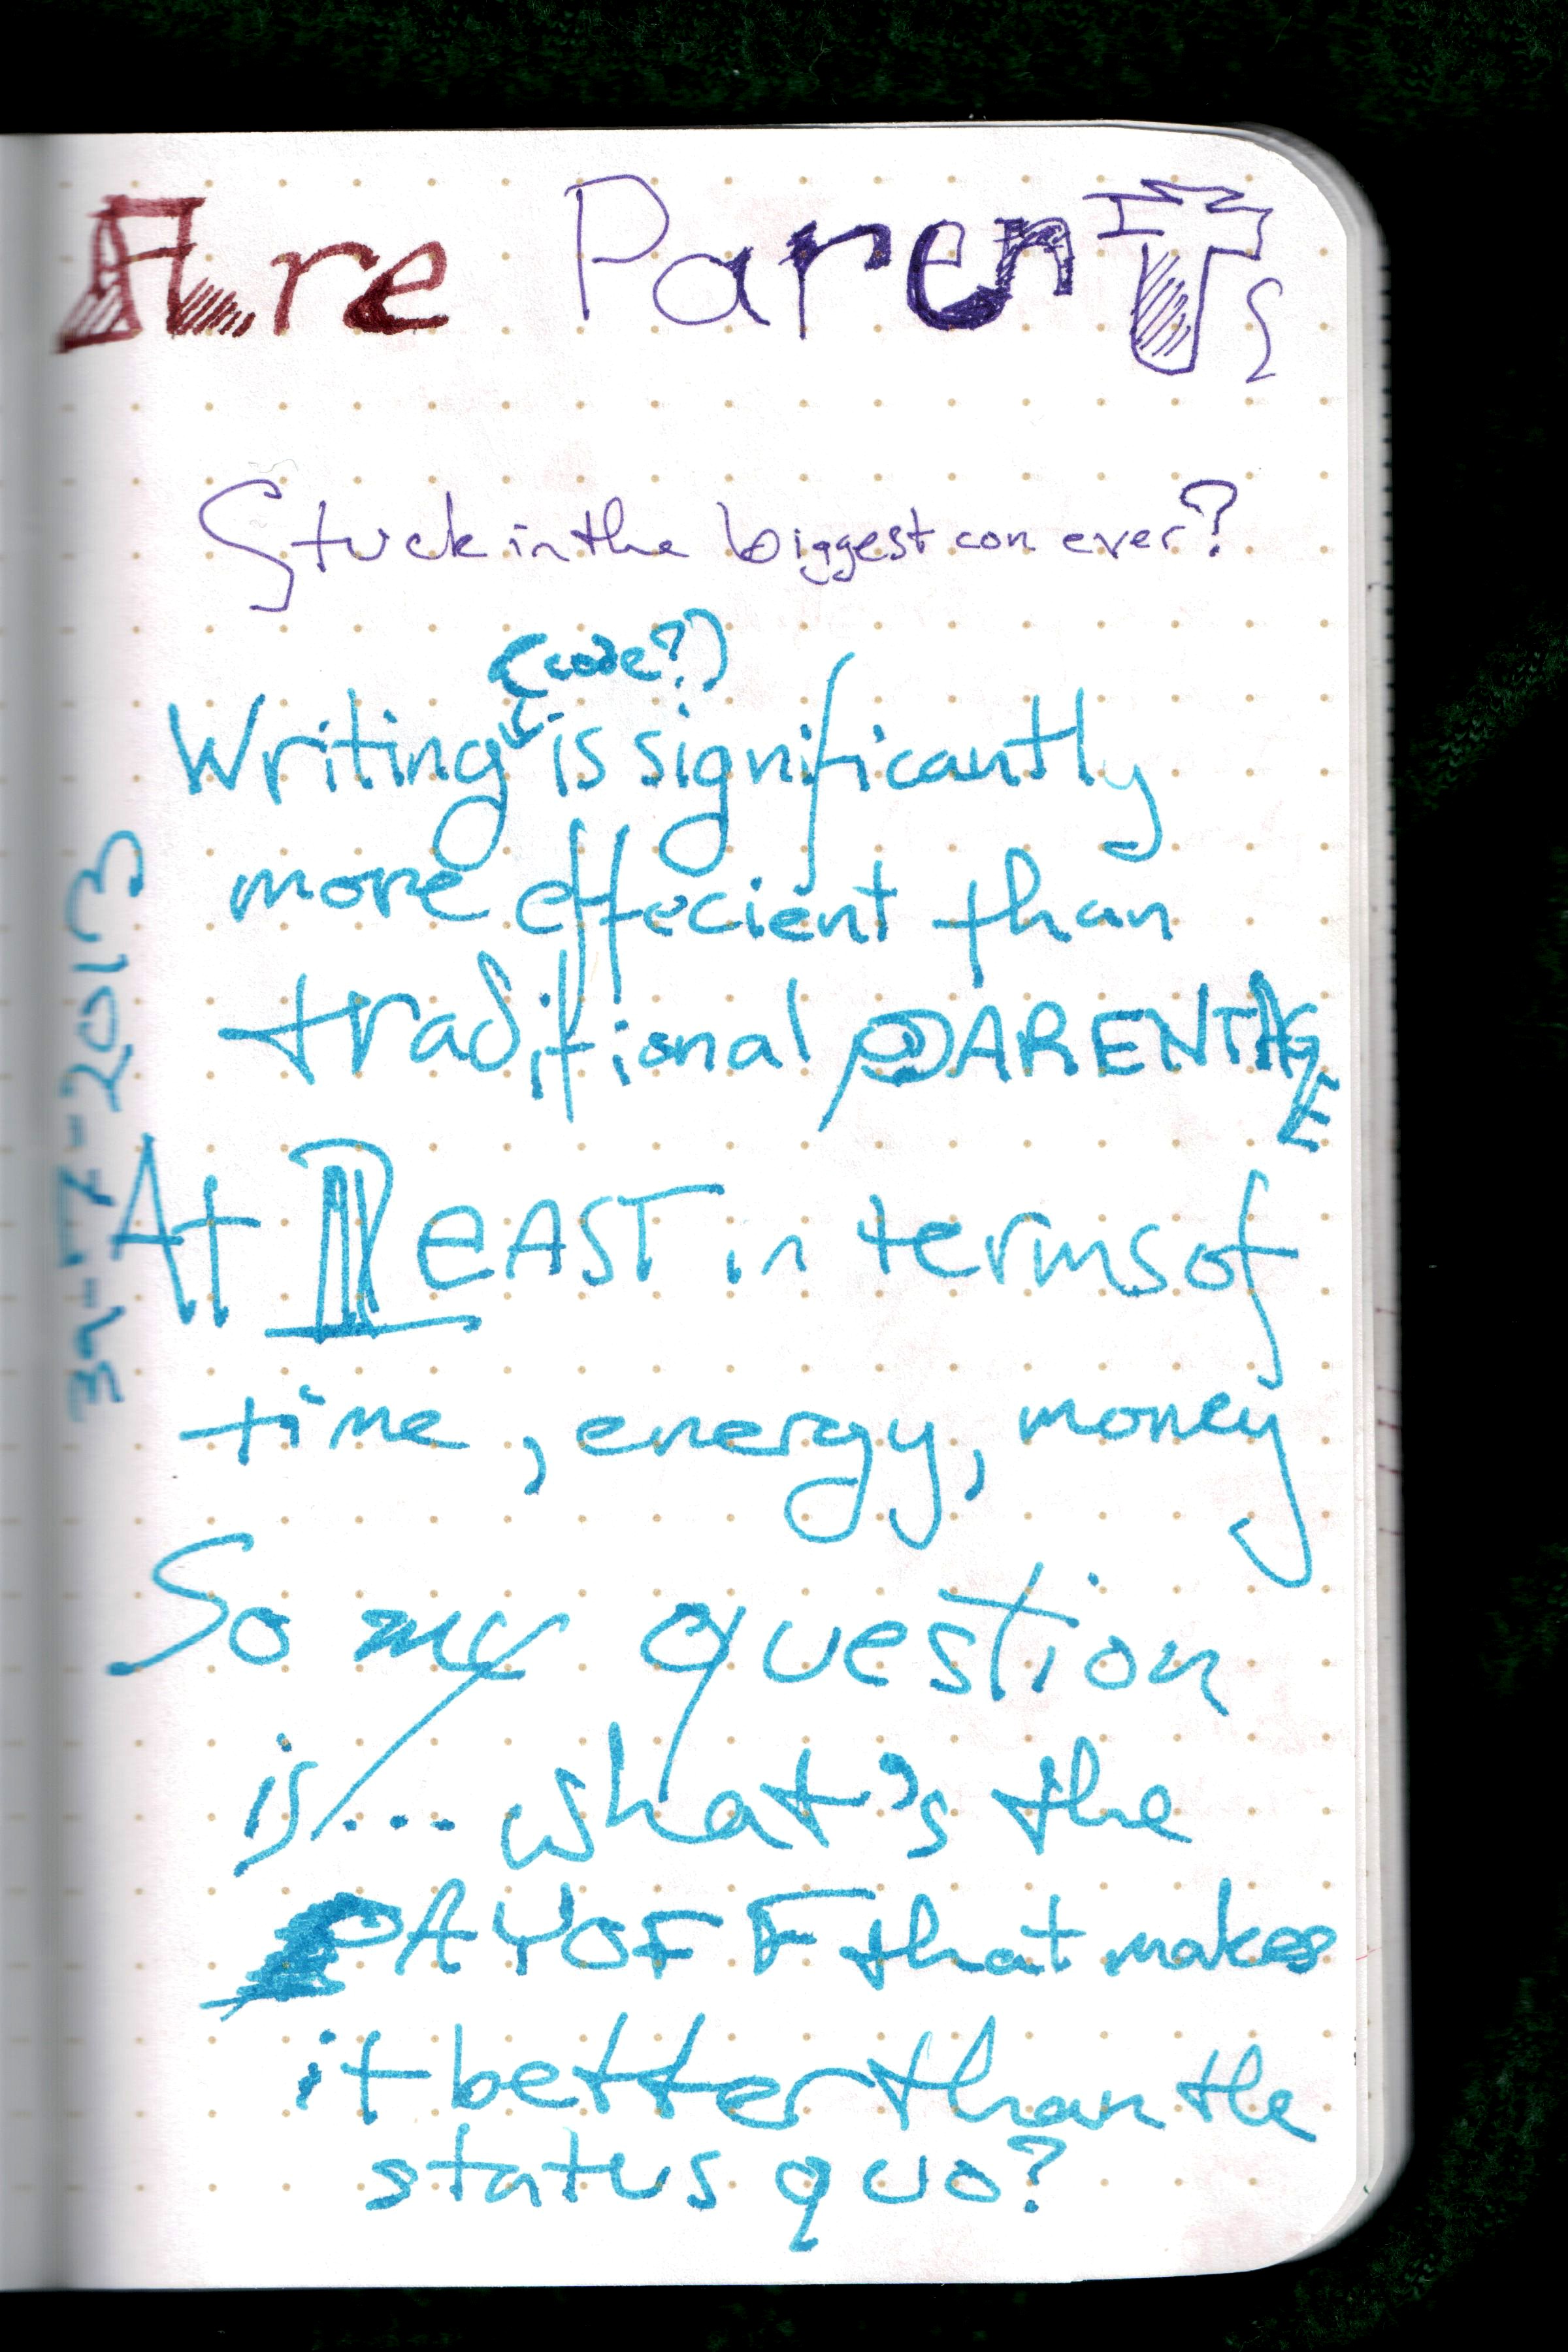 Are ParenTs
Stuck in the biggest con ever?
(code?)
Writing is significantly
more effecient than
traditional PARENTAGE
At LeAST in terms of
time, energy, money
So my question
is... what's the
PAYOFF that makes
it better than the
status quo?
2013